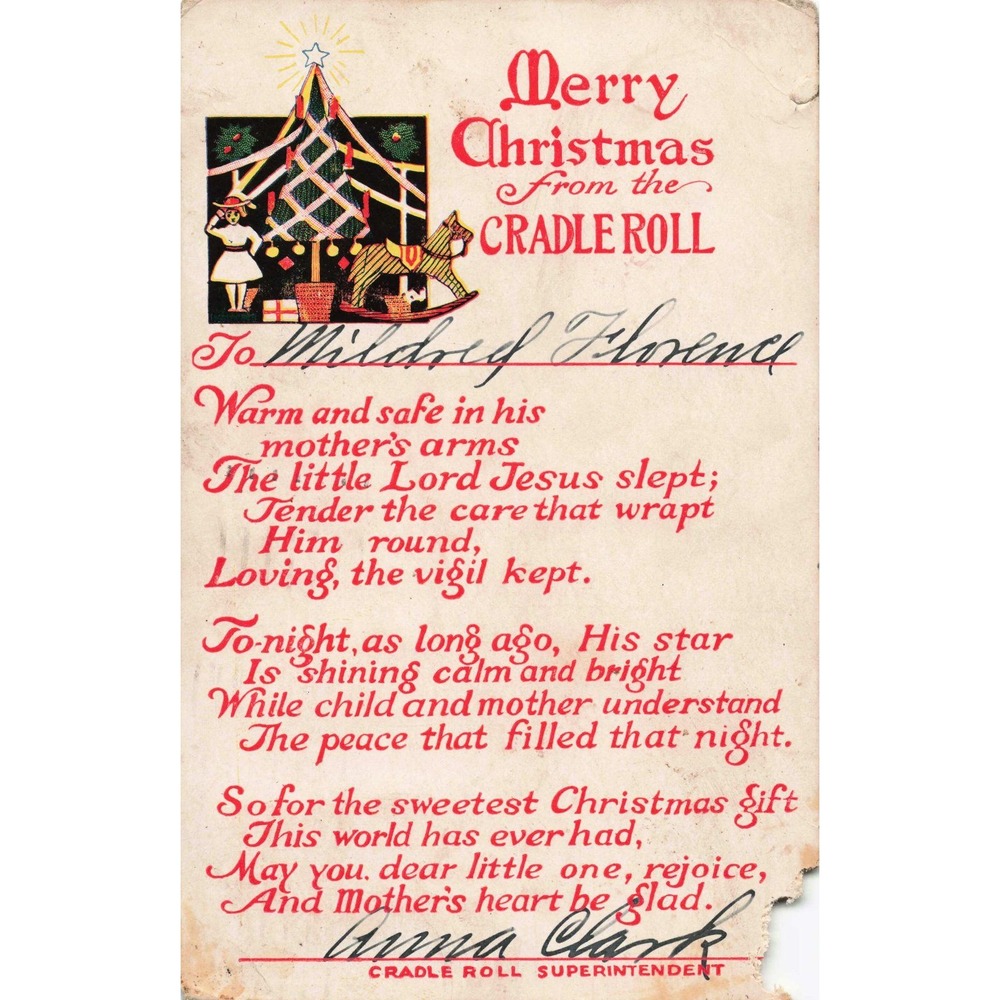 Merry
Christmas
from the
CRADLE ROLL
To Mildred Florence
Warm and safe in his
mother's arms
The little Lord Jesus slept;
Tender the care that wrapt
Him round,
Loving, the vigil kept.
To-night, as long ago, His star
Is shining calm and bright
While child and mother understand
The peace that filled that night.
So for the sweetest Christmas gift
This world has ever had,
May you. dear little one, rejoice,
And Mother's heart be glad.
Anna Clark
CRADLE ROLL SUPERINTENDENT